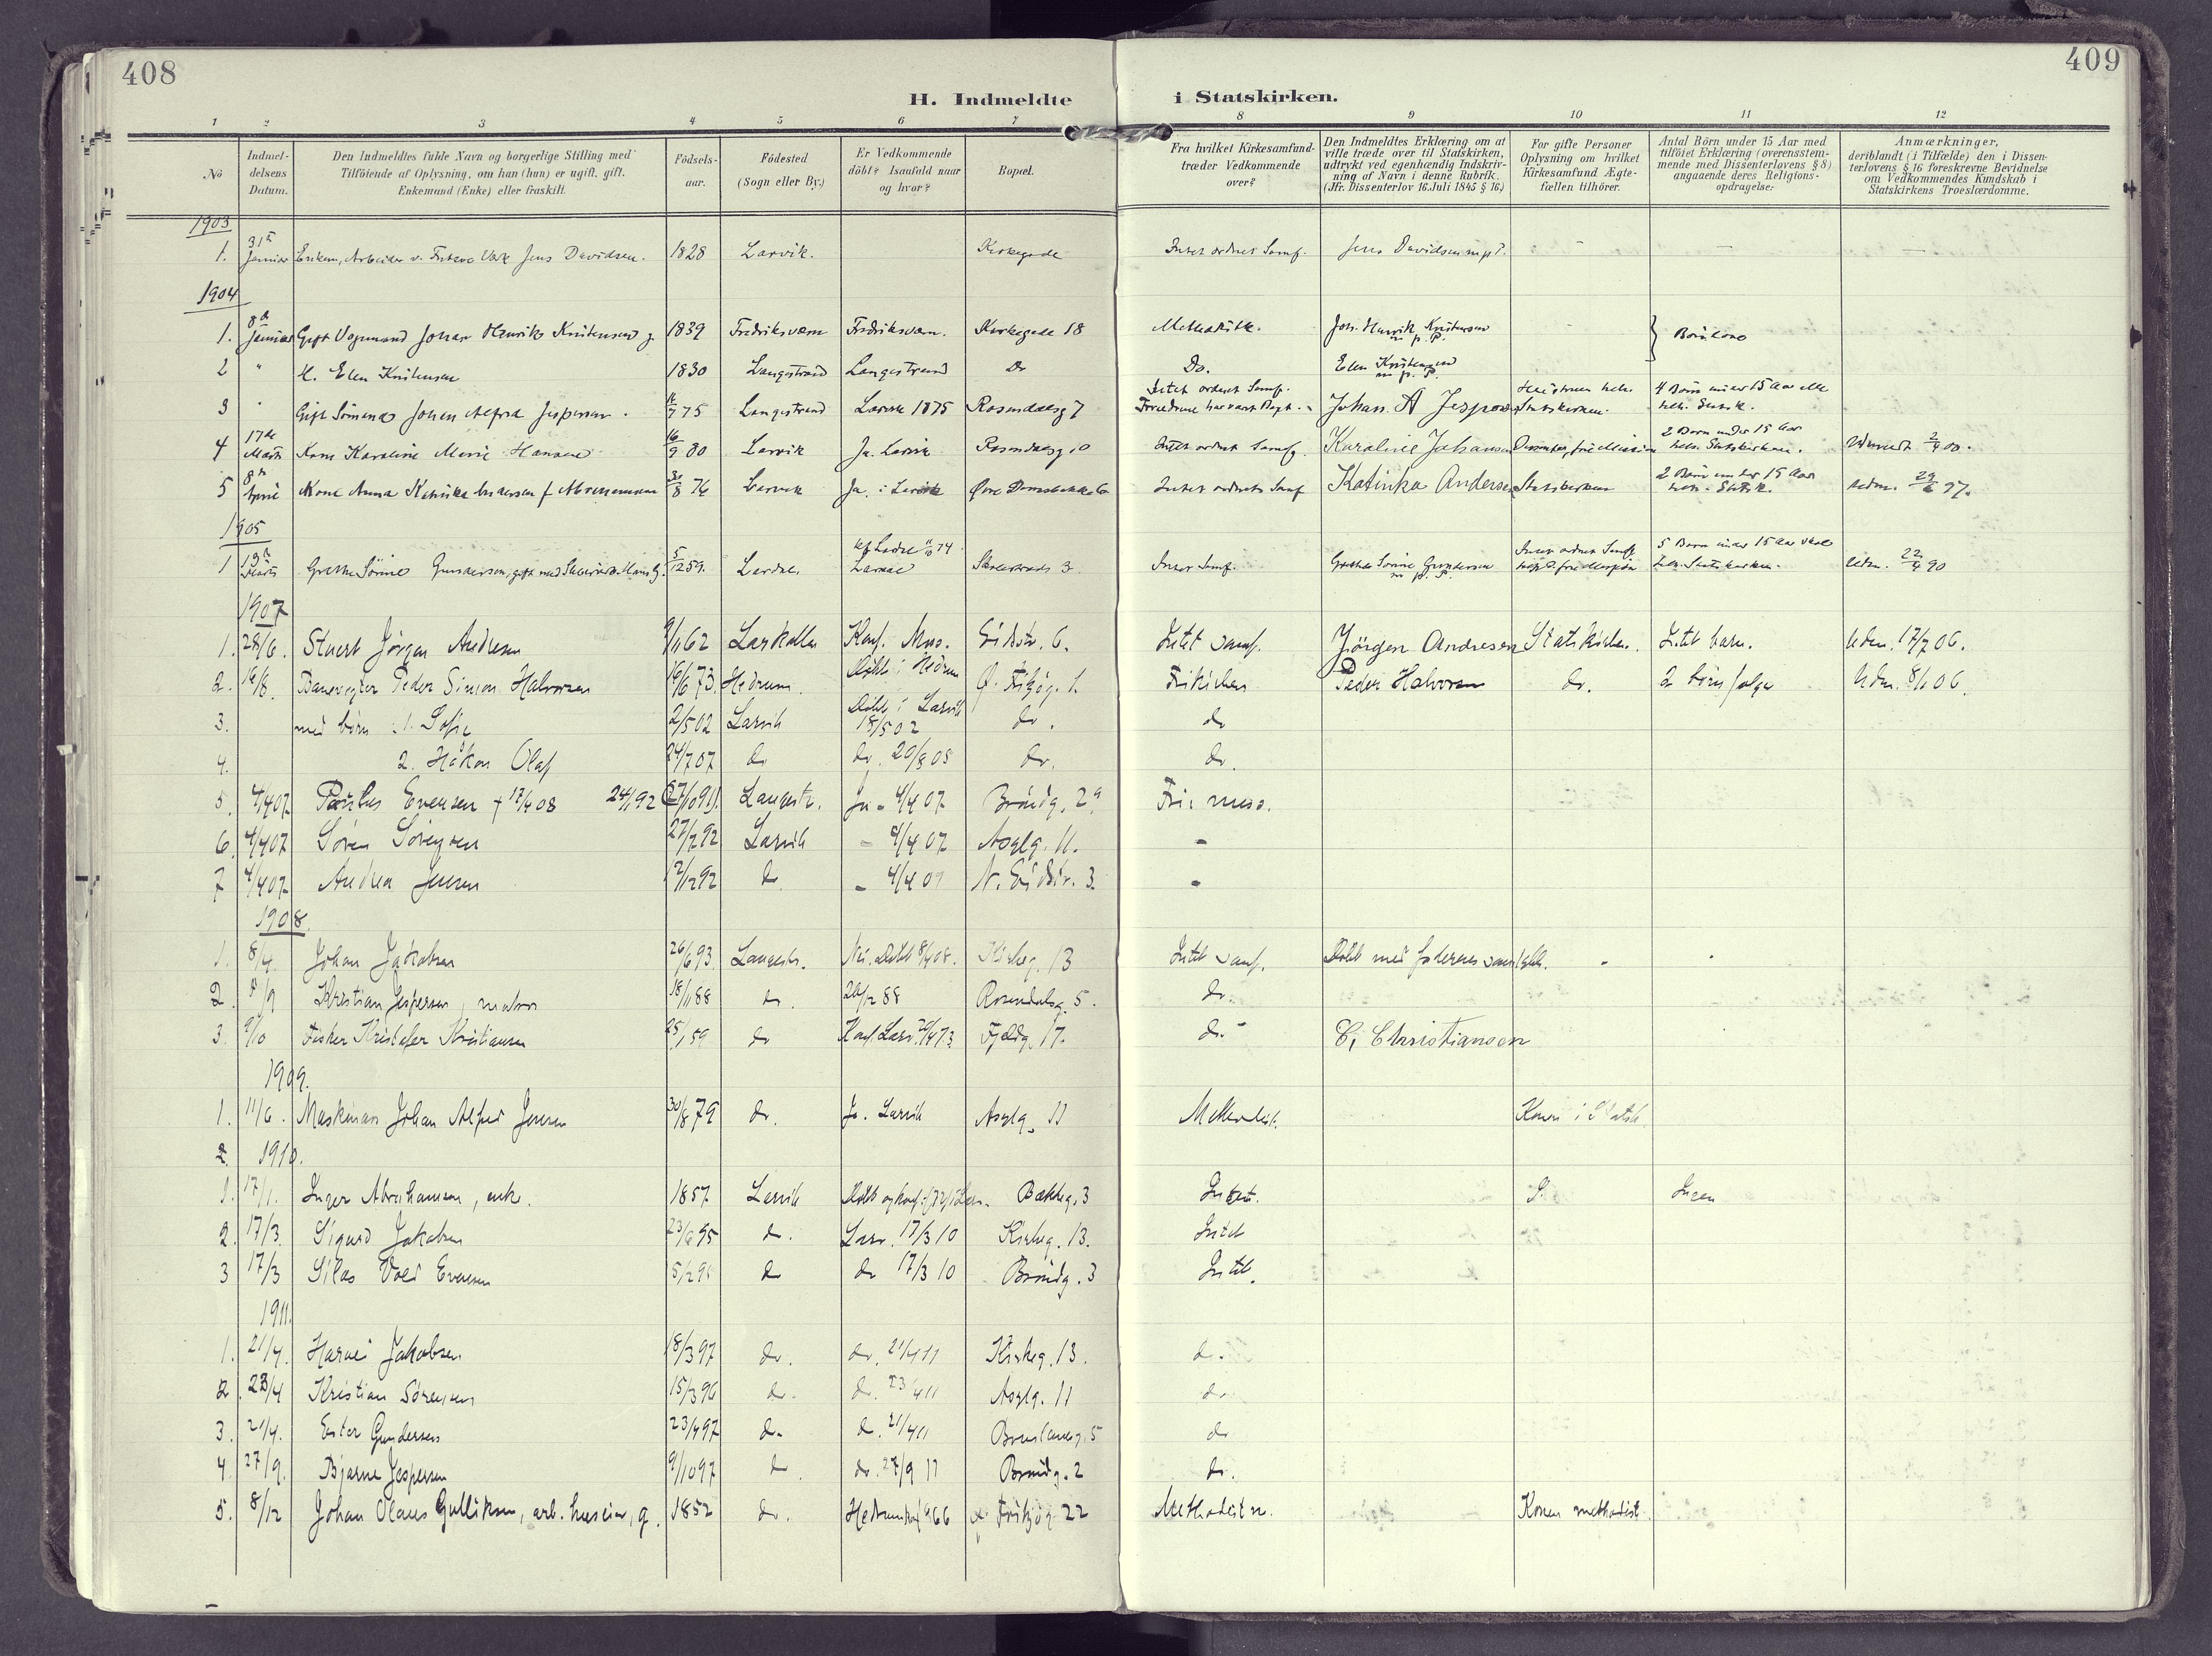 408
409
H. Indmeldte
i Statskirken.
1 2 3 4 5 6 7 8 9 10 11 12
No
Indmeldelsens Datum.
Den Indmeldtes fulde Navn og borgerlige Stilling med Tilföiende af Oplysning, om han (hun) er ugift, gift, Enkemand (Enke) eller fraskilt.
Födselsaar.
Födested (Sogn eller By.)
Er Vedkommende döbt? Isaafald naar og hvor?
Bopæl.
Fra hvilket Kirkesamfund træder Vedkommende over?
Den Indmeldtes Erklæring om at ville træde over til Statskirken, udtrykt ved egenhændig Indskrivning af Navn i denne Rubrik. (Jfr. Dissenterlov 16. Juli 1845 § 16.)
For gifte Personer Oplysning om hvilket Kirkesamfund Ægtefællen tilhörer.
Antal Börn under 15 Aar med tilföiet Erklæring (overensstemmende med Dissenterlovens § 8) angaaende deres Religionsopdragelse:
Anmærkninger, deriblandt (i Tilfælde) den i Dissenterlovens § 16 foreskrevne Bevidnelse om Vedkommendes Kundskab i Statskirkens Troeslærdomme.
1903
1. 31te Januar Enkem, Arbeider v. Fritzøe Værk Jens Davidsen. 1828 Larvik. Kirkegade Intet ordnet Samf. Jens Davidsen m.p.P. - - -
1904
1. 8de Januar Gift Vognmand Johan Henriks Kristensen 1839 Fredriksværn Fredriksværn. Kirkegade 18 Methodistk. Joh. Henrik Kristensen m. p. P. - Barnløse
2 " H. Elen Kristensen 1830 Langestrand Langestrand Do Do. Elen Kristensen m. p. P.
3 " Gift Sømand Johan Alfred Jespersen. 75 Langestrand Larvik 1875 Rosendalsg 7 Intet ordnet Samf. Johan. A Jespersen Statskirken. 4 Børn under 15 Aar
4 17de Marts Kone Karoline Marie Hansen 16/9 80 Larvik Ja. Larvik Rosendalsg 10 Intet ordnet Samf. Karoline Johansen Dissenter, fri Mission 2 Børn under 15 Aar Statskirken. Udmeldt 2/4 00.
5 8de April Kone Anna Katinka Andersen f. Abrahamsen 30/8 76 Larvik Ja. i Larvik Intet ordnet Samf Katinka Andersen Statskirken 2 Børn under 15 Aar Udm. 29/6 97.
1905
1 13de Marts Grethe Sørine Gundersen, gift med 5/12 59. Lardal. Lardal 3 Intet Samf. Grethe Sørine Gundersen m. p. P. Intet ordnet Samf 5 Børn under 15 Aar Statskirken. Udm. 22/4 90
1907
1. 28/6. Stuert Jørgen Andresen 9/11 62 Larkollen Konf. Moss. Eidstr. 6. Intet samf. Jörgen Andresen Statskirken. Intet barn. Udm. 17/7 06.
2. 16/8. Banevogter Peder Simon Halvorsen 16/6 73. Hedrum. Døbt i Hedrum Frikirken Peder Halvorsen do. 2 børn følger Udm. 8/1 06.
3. med børn: 1. Sofie 2/5 02 Larvik Døbt i Larvik 18/5 02 do. do
4. 2. Håkon Olaf 24/7 07 do do. 20/8 05 do. do.
5. 4/4 07 Paulus Evensen † 17/4 08 24/1 92 Langestr. Ja - 4/4 07 Brandg. 2a Fri miss.
6. 4/4 07 Søren Sørensen 27/7 92 Larvik - 4/4 07 Asylg. 11. -
7 4/4 07 Andrea Jensen 12/12 92 do - 4/4 07 N. Eidstr. 3. -
1908.
1. 8/4. Johan Jakobsen 26/6 93. Langestr. Nei. Døbt 8/4 08. Kirkeg. 13 Intet samf. Døbt med faderens samtykke. - -
2. 8/9 Kristian Jespersen, matros 18/11 88 do. 26/12 88 Rosendalsg. 5. do.
3. 9/10 Fisker Kristofer Kristiansen 25/1 59 do Konf. Larv. 20/4 73 Fjeldg. 17. do. - C, Christiansen
1909.
1. 11/6. Maskinar Johan Alfred Jensen 30/8 79 do. Ja. Larvik Asylg. 11 Methodist. Konen i Statsk.
2. 1910.
1. 17/1. Inger Abrahamsen, enke. 1857 Larvik Døbt og konf. Larv. Bækkeg. 3 Intet. S. Ingen
2. 17/3. Sigurd Jakobsen 23/6 95 do. Larv. 17/3 10 Kirkeg. 13. Intet
3 17/3 Silas Vold Evensen do do 17/3 10 Brandg. 3 Intet.
1911.
1. 21/4. Harald Jakobsen 18/3 97 do. do. 21/4 11 Kirkeg. 13. do.
2. 23/4 Kristian Sørensen 15/3 96 do. do. 23/4 11 Asylg. 11 do
3. 21/4. Ester Gundersen 23/4 97 do. do. 21/4 11 do
4. 27/9. Bjarne Jespersen 9/10 97 do. do. 27/9 11 Brandg. 2 do.
5. 8/12 Johan Olaus Gulliksen, arb. huseier, g. 1852 do. Hedrum 66 Fritzøg. 22 Methodist n. Konen methodist.